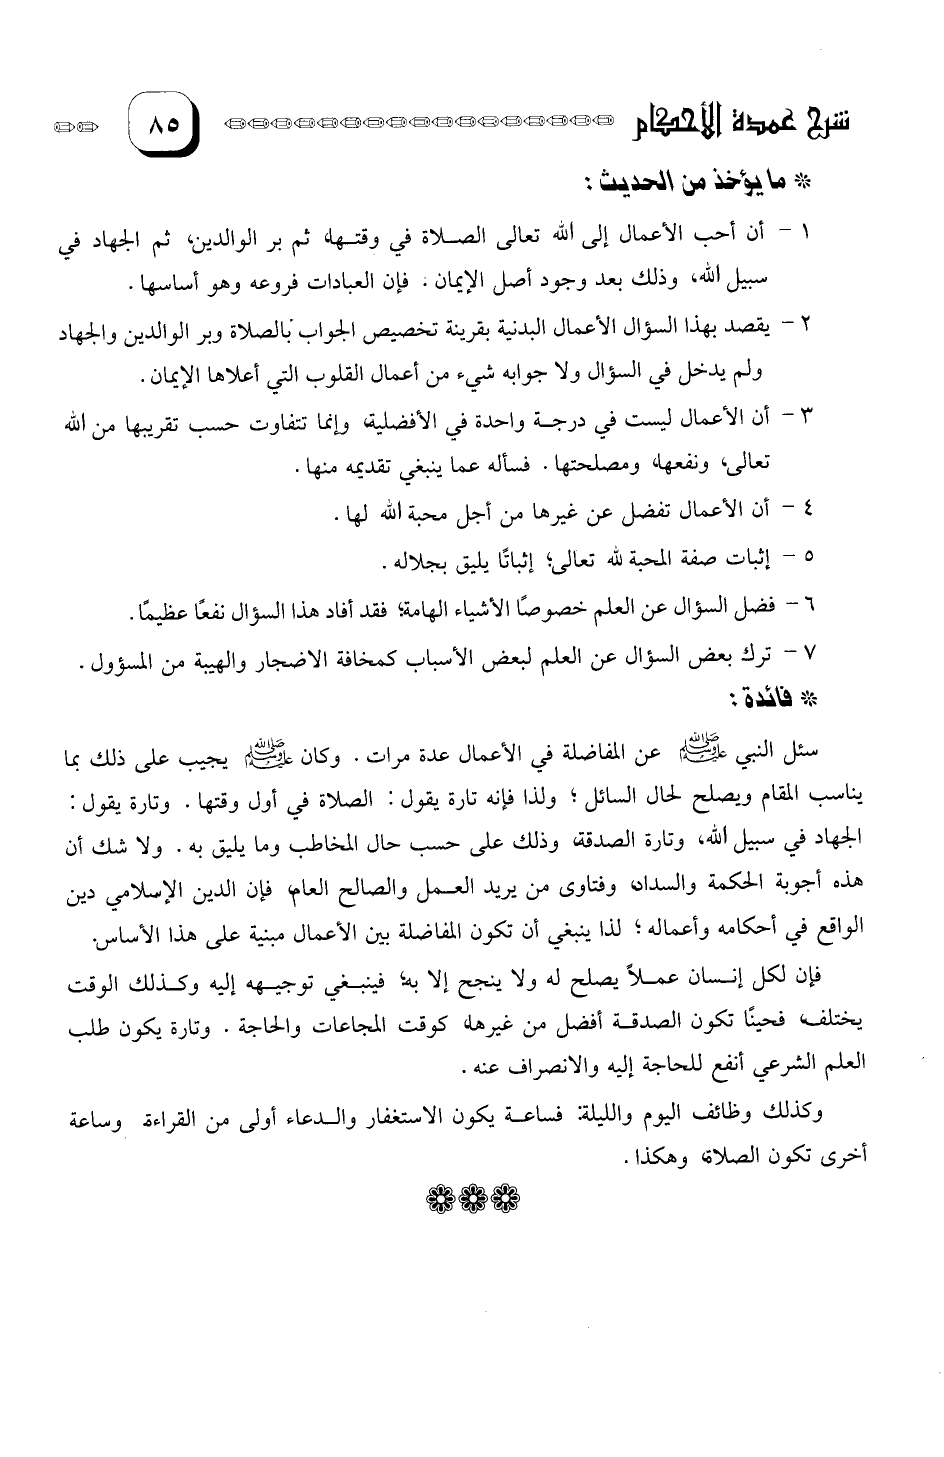 شرح عمدة الأحكام ٨٥
* ما يؤخذ من الحديث :
١ - أن أحب الأعمال إلى الله تعالى الصلاة في وقتها، ثم بر الوالدين، ثم الجهاد في
سبيل الله، وذلك بعد وجود أصل الإيمان . فإن العبادات فروعه وهو أساسها .
٢ - يقصد بهذا السؤال الأعمال البدنية بقرينة تخصيص الجواب بالصلاة وبر الوالدين والجهاد
ولم يدخل في السؤال ولا جوابه شيء من أعمال القلوب التي أعلاها الإيمان .
٣ - أن الأعمال ليست في درجة واحدة في الأفضلية، وإنما تتفاوت حسب تقريبها من الله
تعالى، ونفعها، ومصلحتها . فسأله عما ينبغي تقديمه منها .
٤ - أن الأعمال تفضل عن غيرها من أجل محبة الله لها .
٥ - إثبات صفة المحبة لله تعالى؛ إثباتًا يليق بجلاله .
٦ - فضل السؤال عن العلم خصوصًا الأشياء الهامة؛ فقد أفاد هذا السؤال نفعًا عظيمًا .
٧ - ترك بعض السؤال عن العلم لبعض الأسباب كمخافة الاضجار والهيبة من المسؤول .
* فائدة :
سئل النبي ﷺ عن المفاضلة في الأعمال عدة مرات . وكان ﷺ يجيب على ذلك بما
يناسب المقام ويصلح لحال السائل ؛ ولذا فإنه تارة يقول : الصلاة في أول وقتها . وتارة يقول :
الجهاد في سبيل الله، وتارة الصدقة، وذلك على حسب حال المخاطب وما يليق به . ولا شك أن
هذه أجوبة الحكمة والسداد، وفتاوى من يريد العمل والصالح العام، فإن الدين الإسلامي دين
الواقع في أحكامه وأعماله ؛ لذا ينبغي أن تكون المفاضلة بين الأعمال مبنية على هذا الأساس.
فإن لكل إنسان عملاً يصلح له ولا ينجح إلا به؛ فينبغي توجيهه إليه وكذلك الوقت
يختلف، فحينًا تكون الصدقة أفضل من غيرها، كوقت المجاعات والحاجة . وتارة يكون طلب
العلم الشرعي أنفع للحاجة إليه والانصراف عنه .
وكذلك وظائف اليوم والليلة: فساعة يكون الاستغفار والدعاء أولى من القراءة، وساعة
أخرى تكون الصلاة، وهكذا .